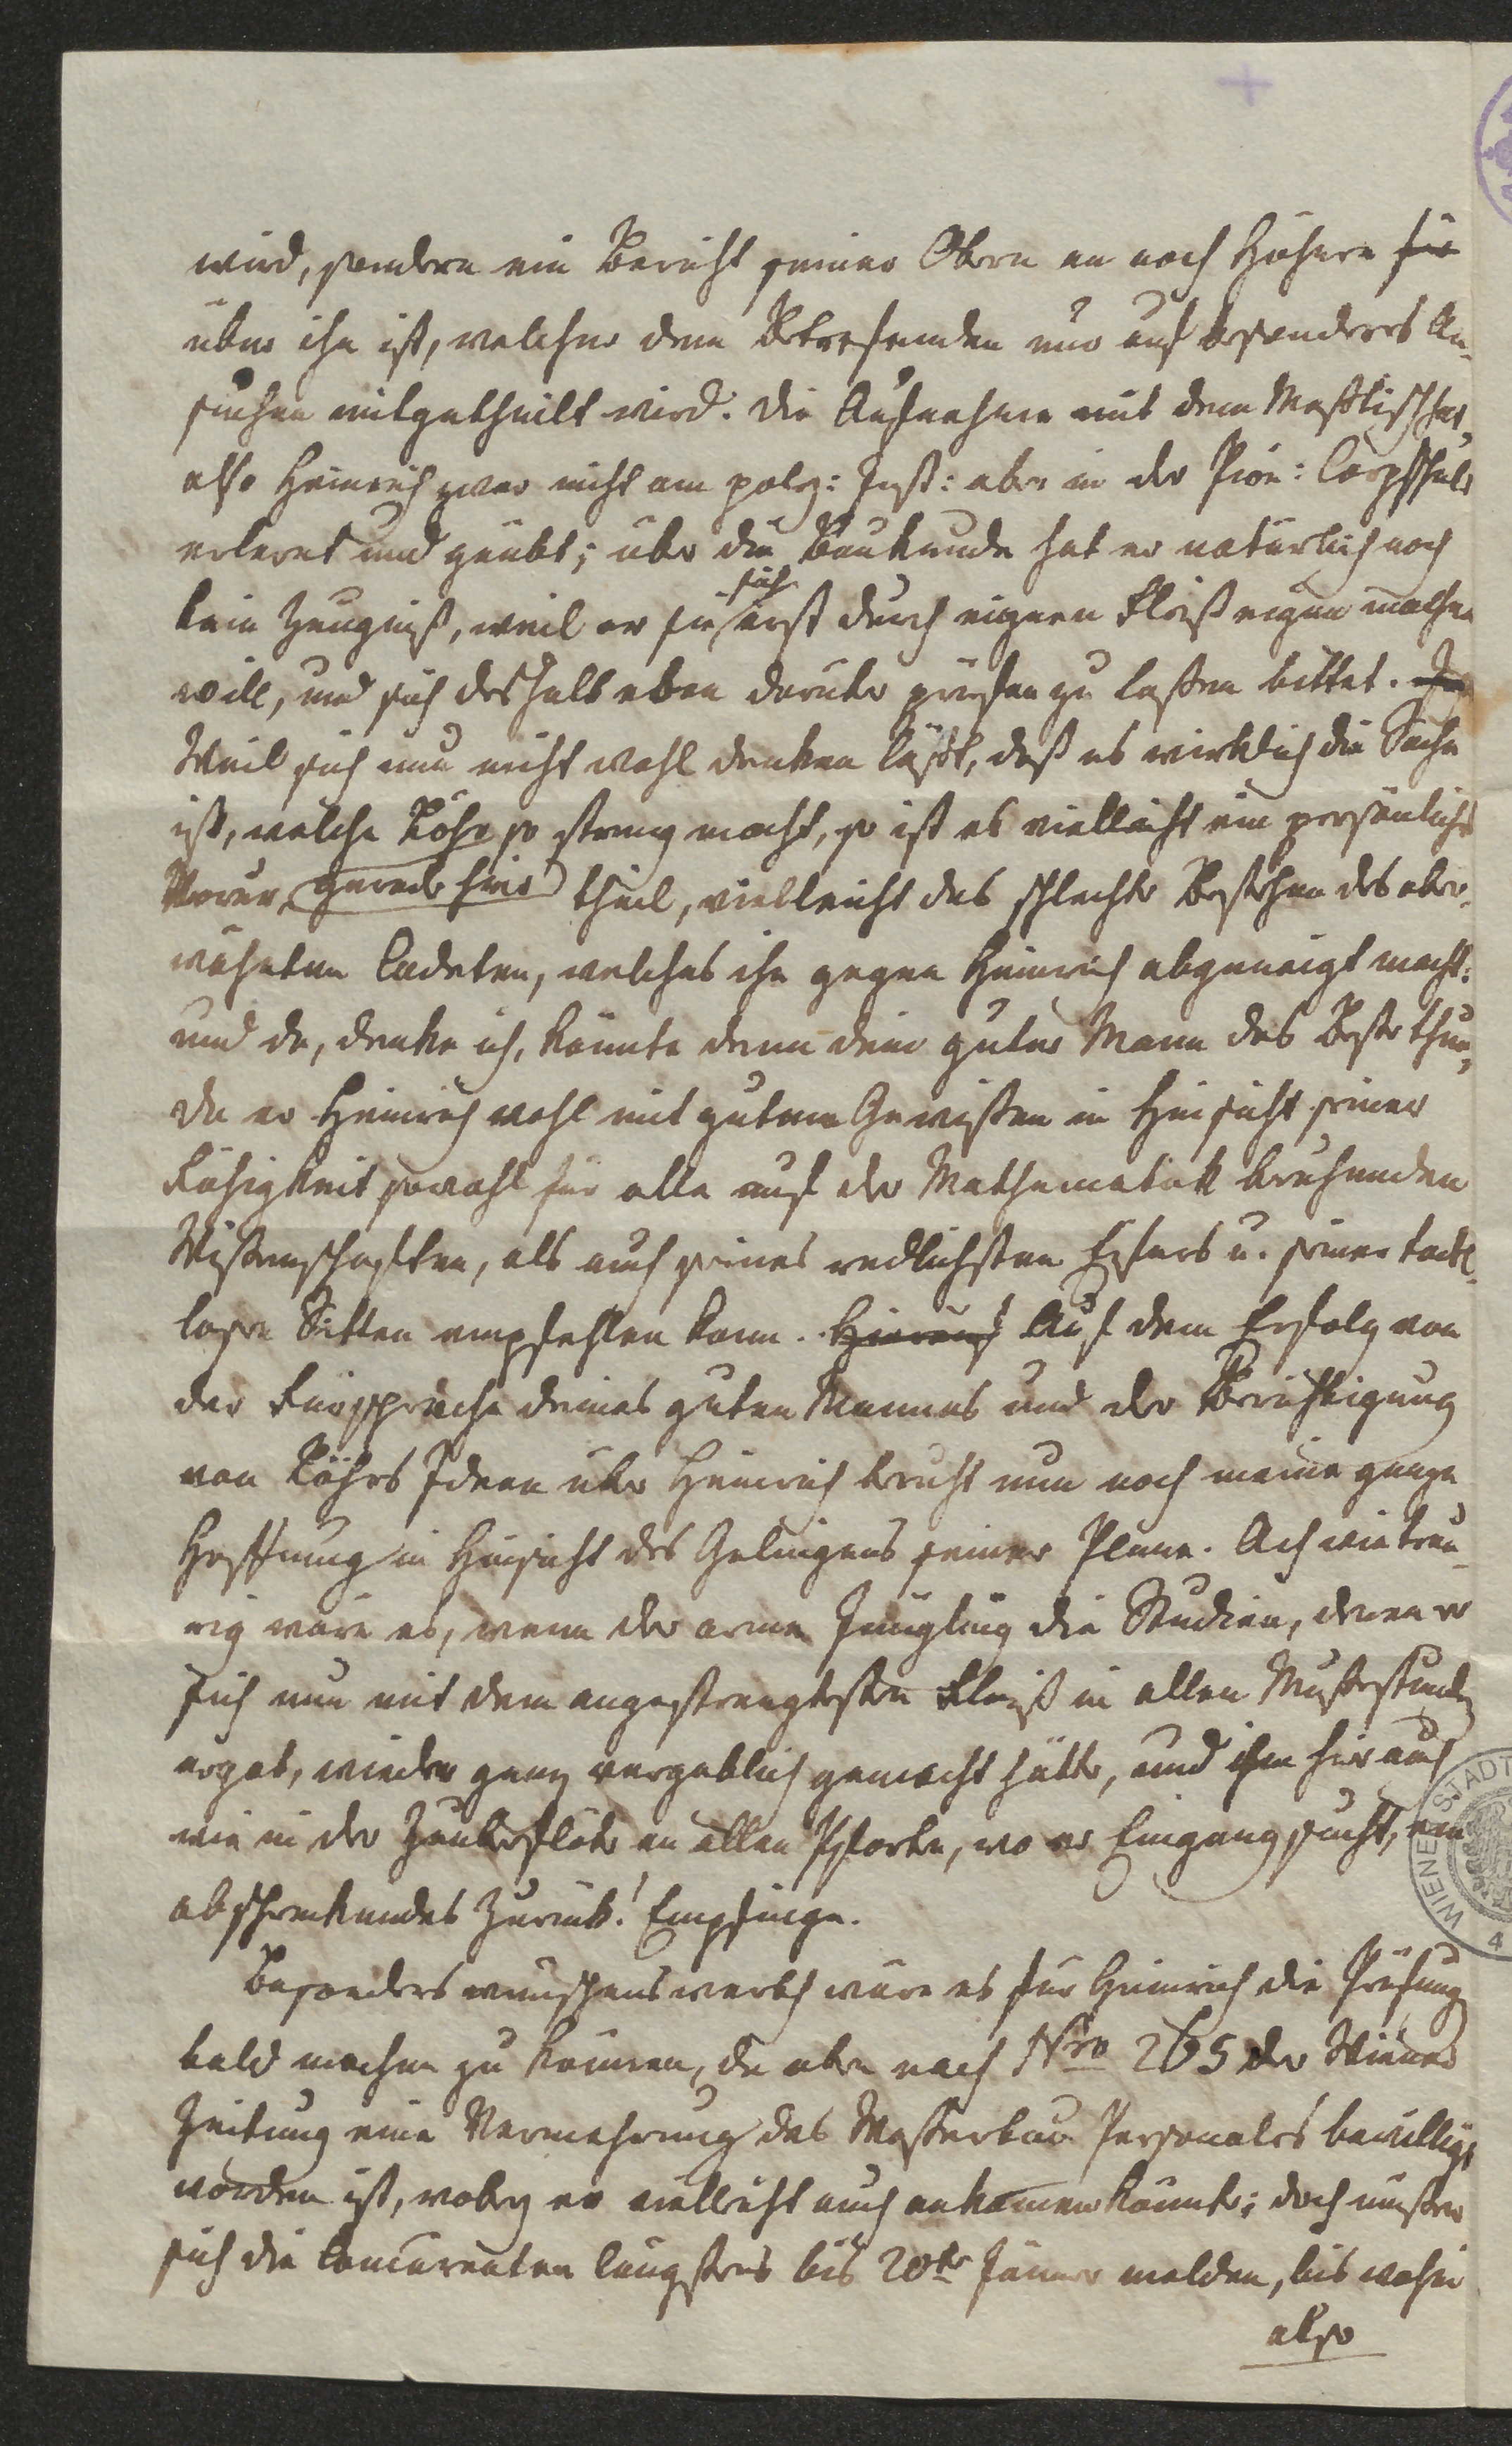 wird, sondern ein Bericht seiner Obern an noch Höhere für
über ihn ist, welcher dem Betrefenden nur auf besonderes An-
suchen mitgetheilt wird. Die Aufnahme mit dem Meßtisch hat,
also Heinrich zwar nicht am polyt: Inst: aber in der Pion: Corpsschule
erlernt und geübt; über die Baukunde hat er natürlich noch
sich
kein Zeugniß, weil er sie erst durch eignen Fleiß eigen machen
will, und sich deshalb eben darüber prüfen zu laßen bittet.
Weil sich nun nicht wohl denken läßt, daß es wirklich die Sache
ist, welche Röhr so streng macht, so ist es vielleicht ein persönliches
Vorur, gerade hin theil, vielleicht das schlechte Bestehen des ober-
wähnten Cadeten, welches ihn gegen Heinrich abgeneigt macht:
und da, denke ich, könnte denn dein guter Mann das Beste thun,
da er Heinrich wohl mit gutem Gewißen in Hinsicht seiner
Fähigkeit sowohl für alle auf der Mathematik beruhenden
Wißenschaften, als auch seines redlichsten Eifers u. seiner tadel-
losen Sitten empfehlen kann. Hierauf Auf dem Erfolg von
der Fürsprache deines guten Mannes und der Berichtigung
von Röhrs Ideen über Heinrich beruht nun noch meine ganze
Hoffnung in Hinsicht des Gelingens seiner Plane. Ach wie trau-
rig wäre es, wenn der arme Jüngling die Studien, denen er
sich nun mit dem angestrengtesten Fleiß in allen Mußestunden
ergab, wieder ganz vergeblich gemacht hätte, und ihm hier auch
wie in der Zauberflöte an allen Pforten, wo er Eingang sucht, ein
abschrekendes Zurük! Empfinge.
Besonders wünschenswerth wäre es für Heinrich die Prüfung
bald machen zu können, da eben nach Nro 265 der Wiener
Zeitung eine Vermehrung des Waßerbau Personales bewilligt
worden ist, wobey er vielleicht auch ankommen könnte; doch müßen
sich die Concurenten längstens bis 20te Jänner melden, bis wohin
also
WIENER STADT
4